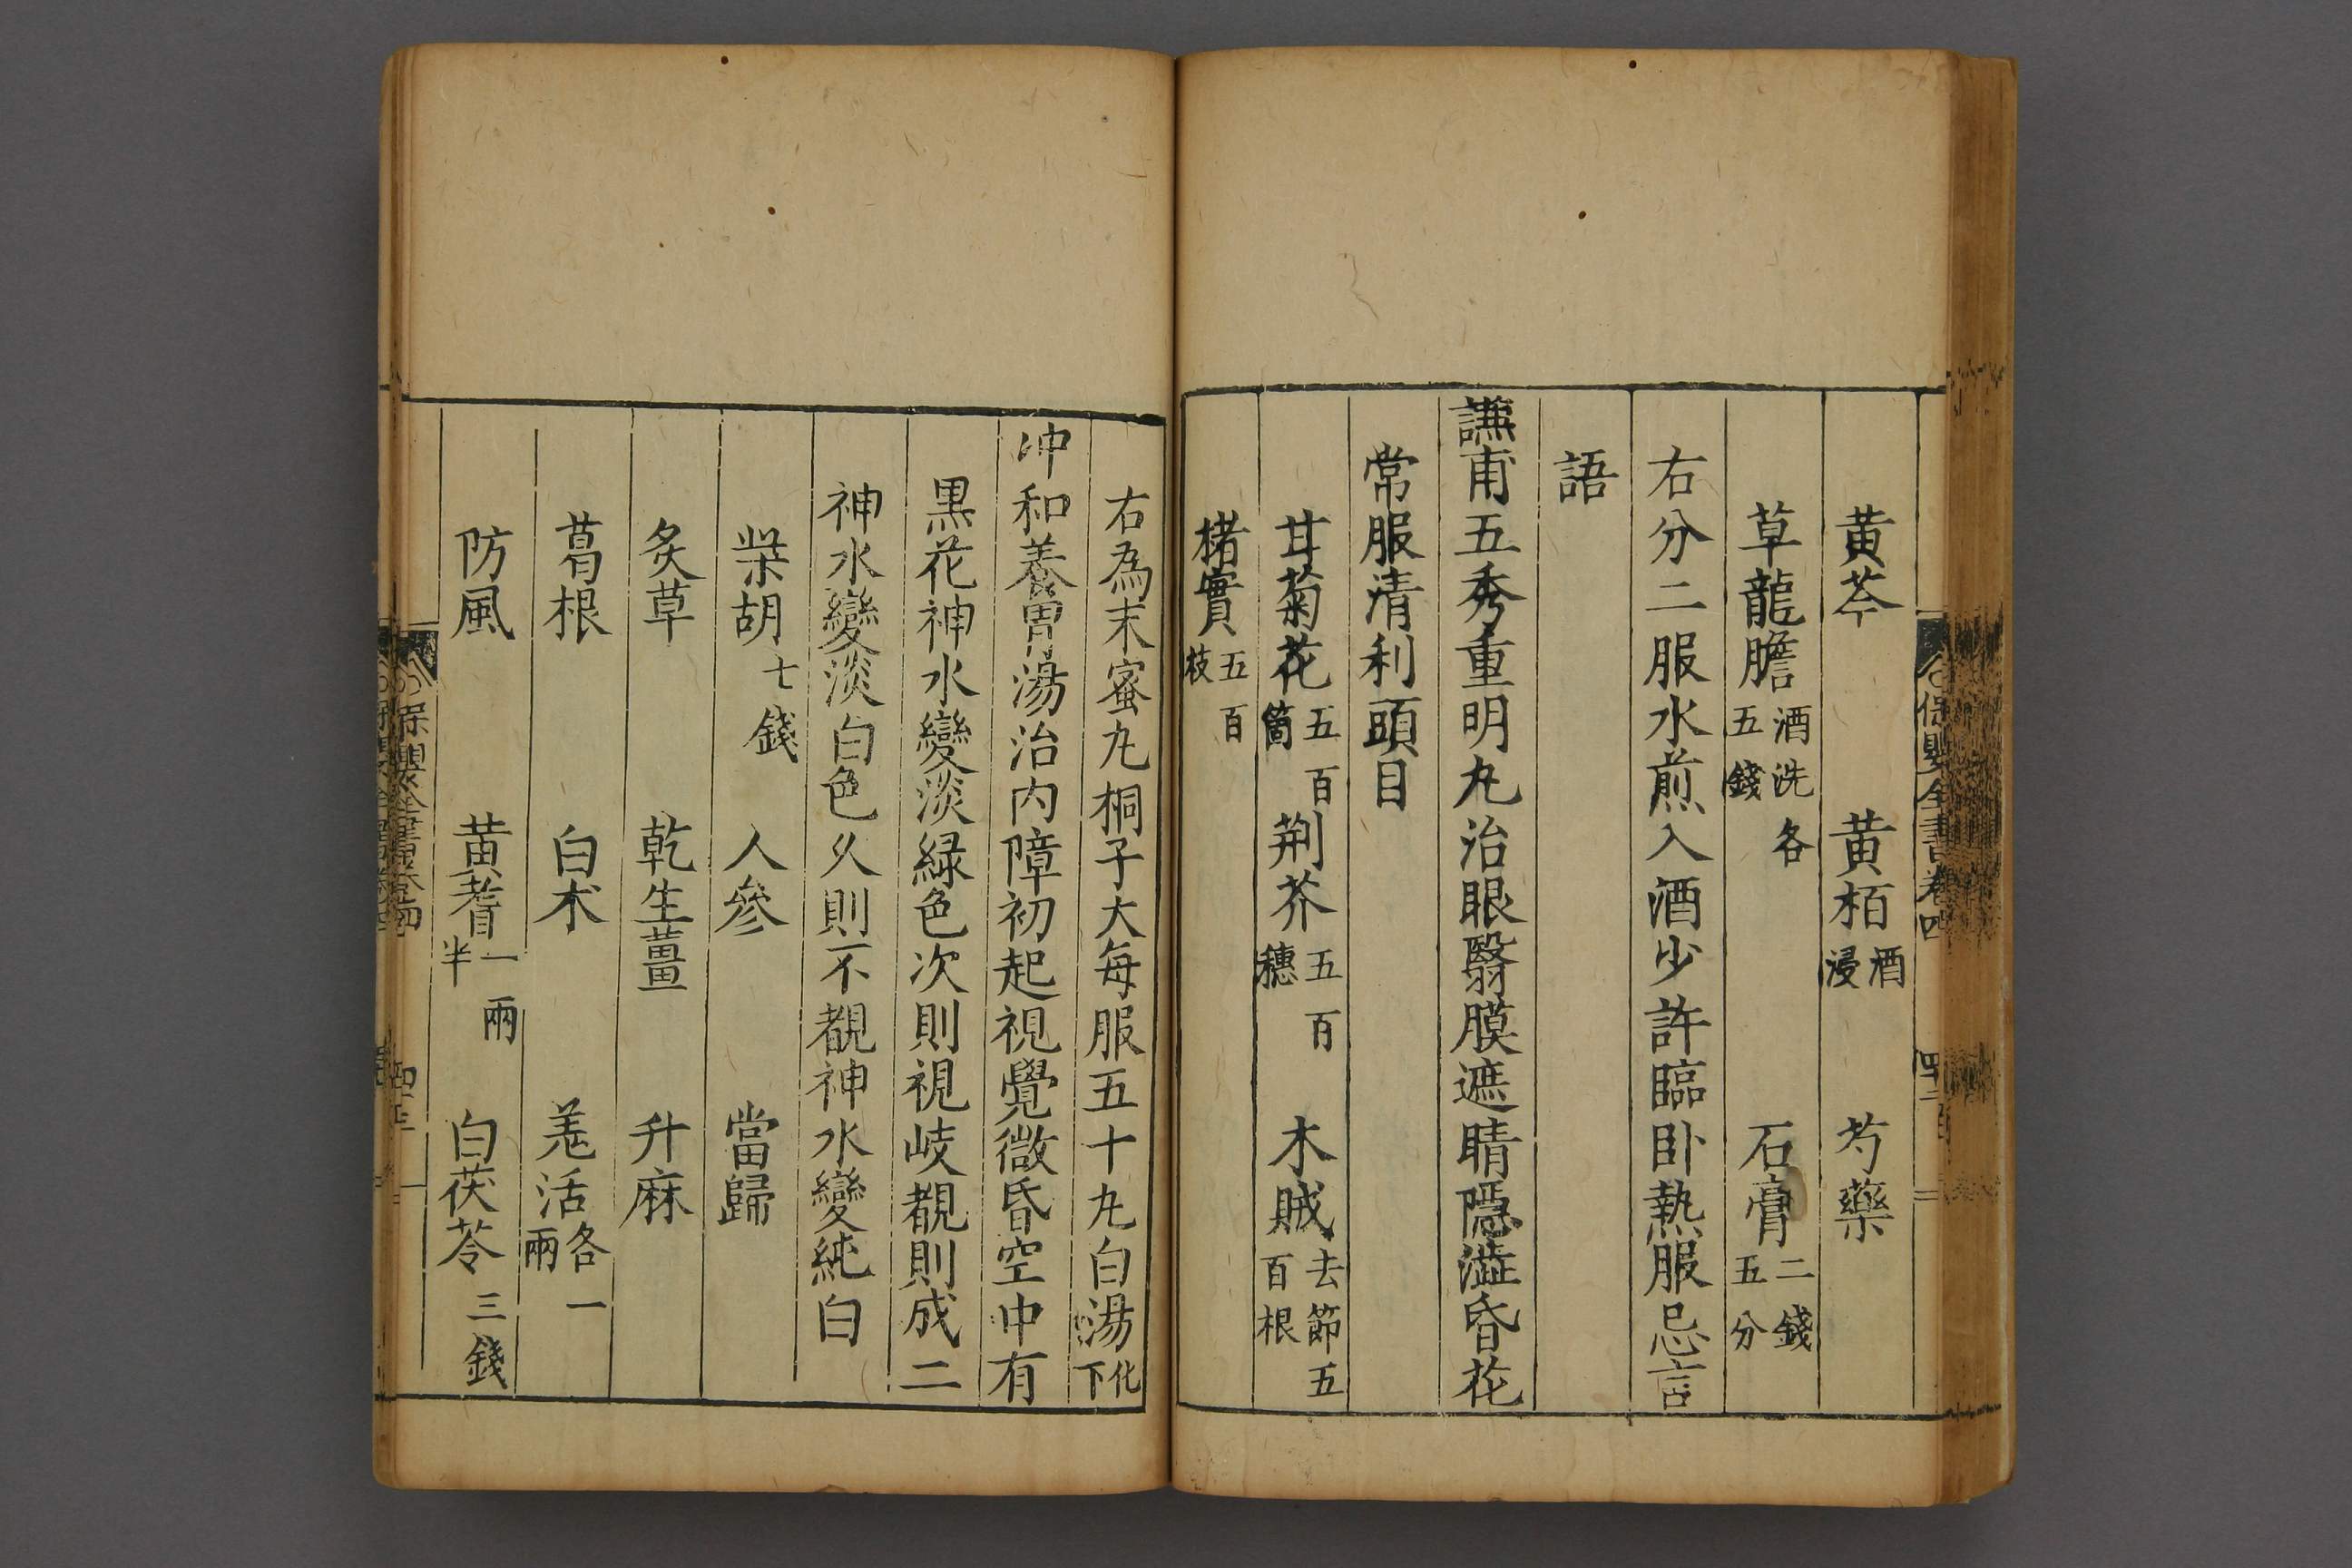 黄芩　黄栢酒浸　芍藥
草龍膽酒洗各五錢　石膏二錢五分
右分二服水煎入酒少許臨卧熱服忌言
語
謙甫五秀重明丸治眼翳膜遮睛隱澁昏花
常服清利頭目
甘菊花五百箇　荆芥五百穗　木賊去節五百根
楮實五百枝
右為末蜜丸桐子大每服五十丸白湯化下
冲和養胃湯治内障初起視覺微昏空中有
黒花神水變淡緑色次則視岐覩則成二
神水變淡白色久則不覩神水變純白
柴胡七錢　人參　當歸
炙草　乾生薑　升麻
葛根　白朮　羗活各一兩
防風　黄耆一兩半　白茯苓三錢
保嬰全書卷四